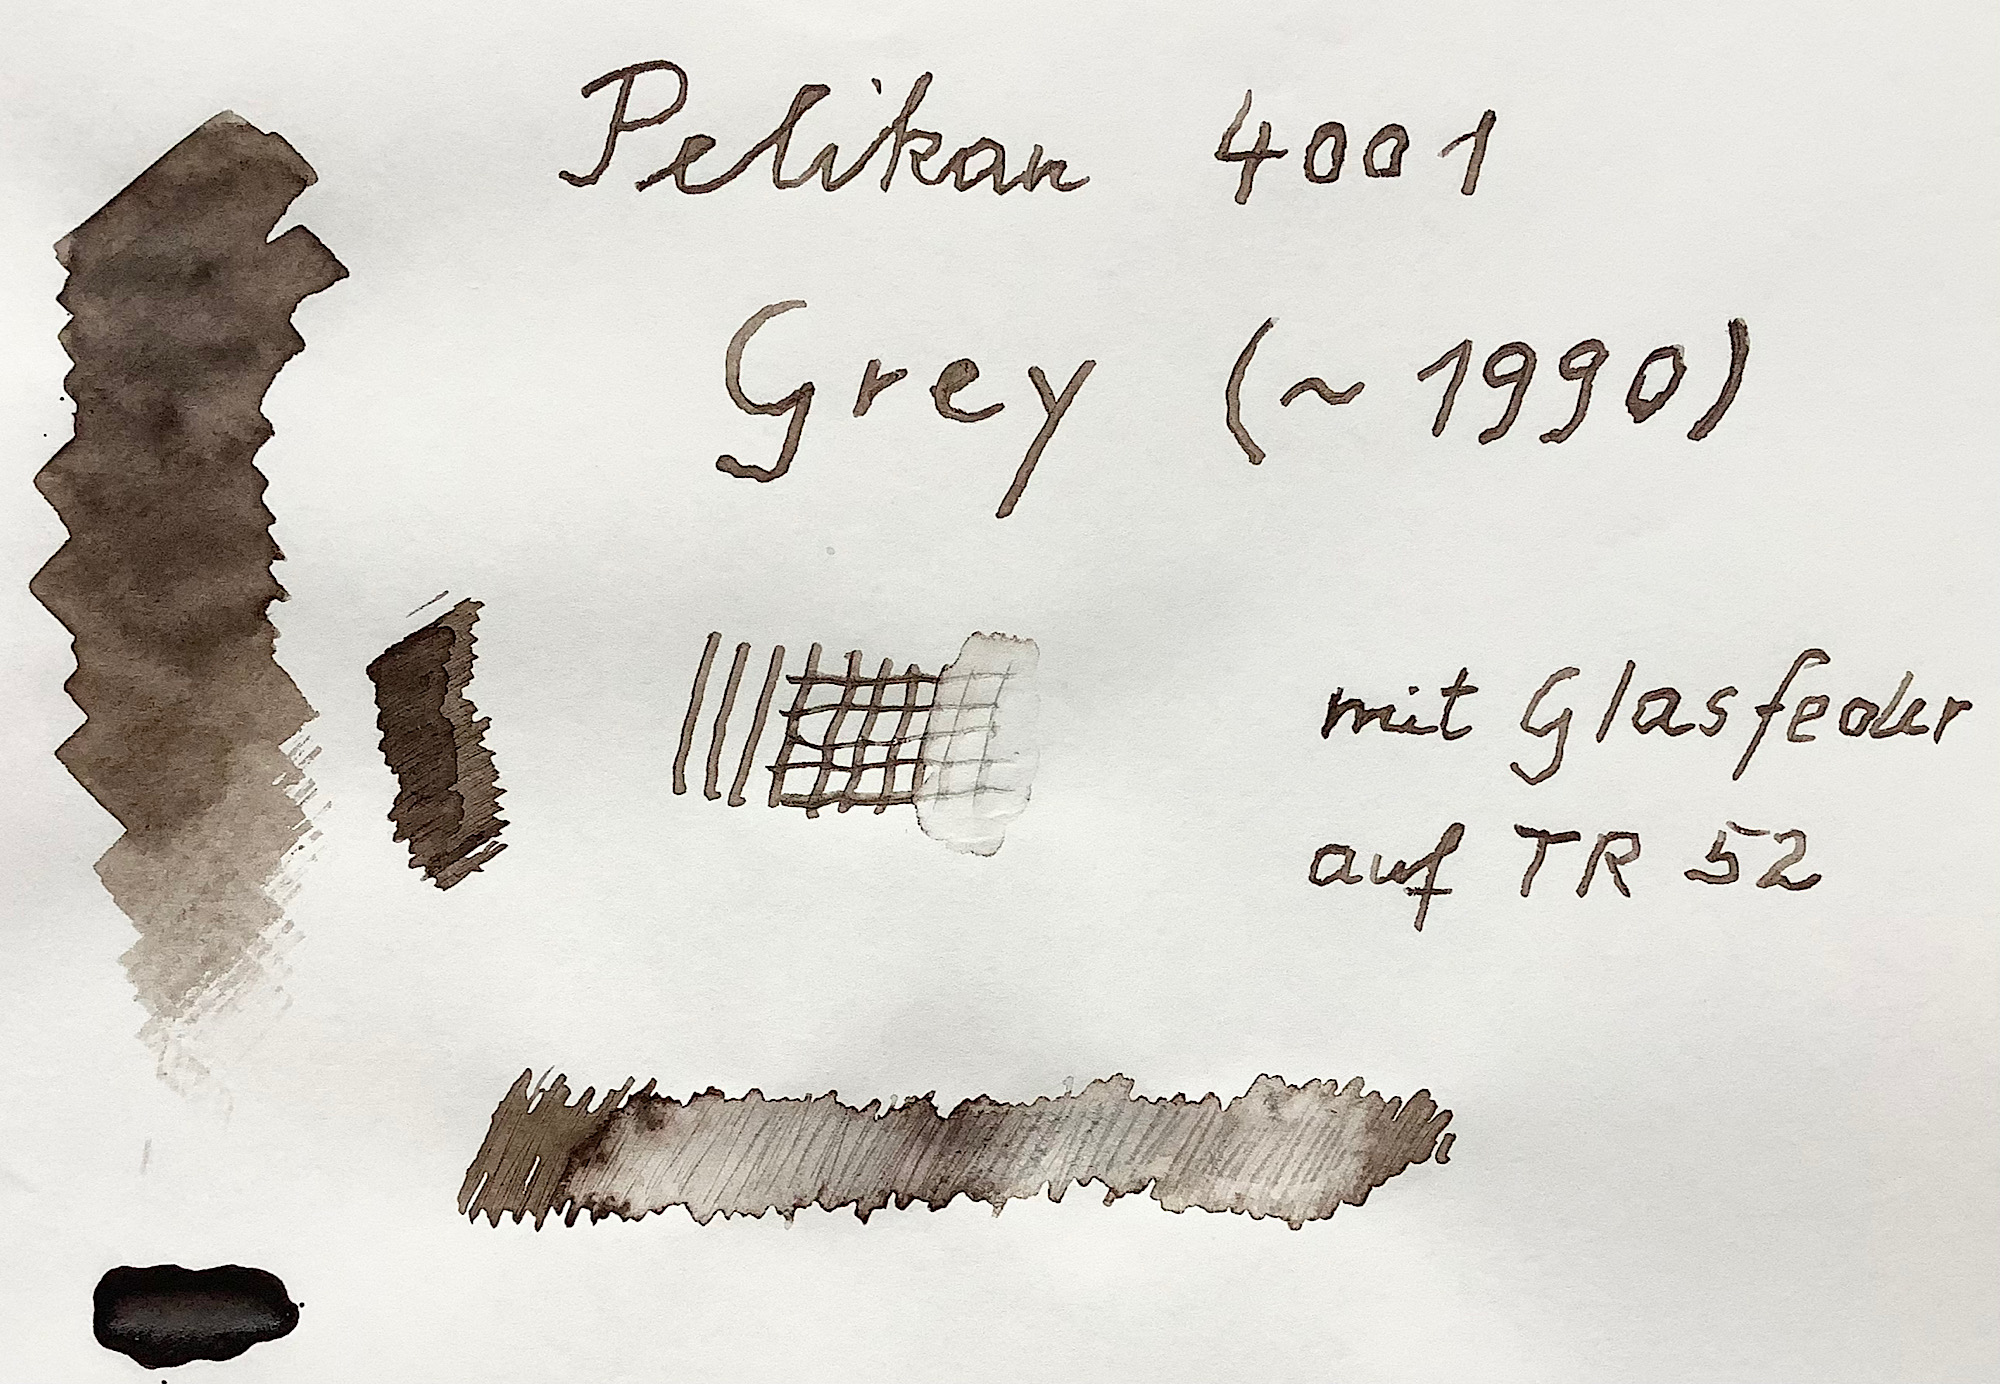 Pelikan 4001
Grey (~ 1990)
mit Glasfeder
auf TR 52